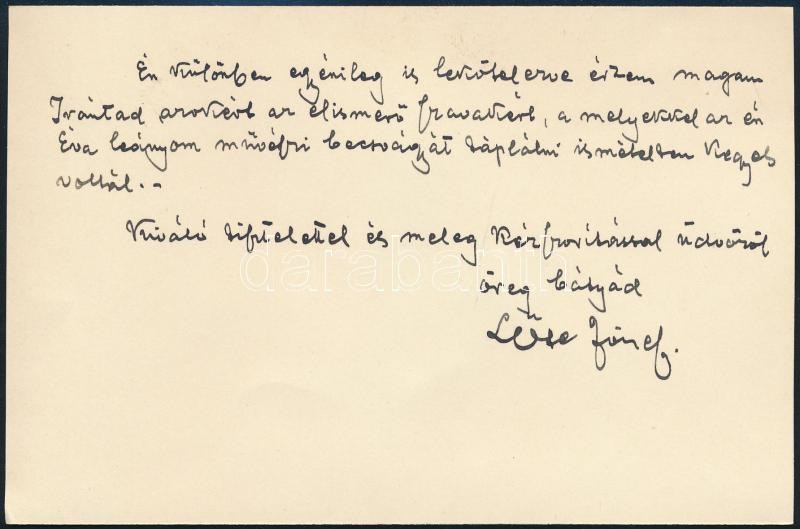 Én különben egyénileg is lekötelezve érzem magam
Irántad azokért az elismerő szavakért, a melyekkel az én
Éva leányom művészi becsvágyát táplálni ismételten kegyes
voltál. –
Kiváló tisztelettel és meleg kézszorítással üdvözöl
öreg bátyád
József.
darabanth